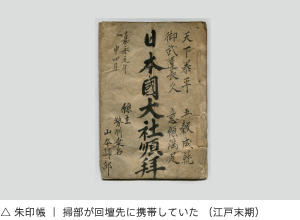 天下泰平 五穀成就
御武運長久 意願満足
日本國大社順拜
嘉永元年
申四月
願主
勢州
山本
△ 朱印帳 | 掃部が回壇先に携帯していた (江戸末期)